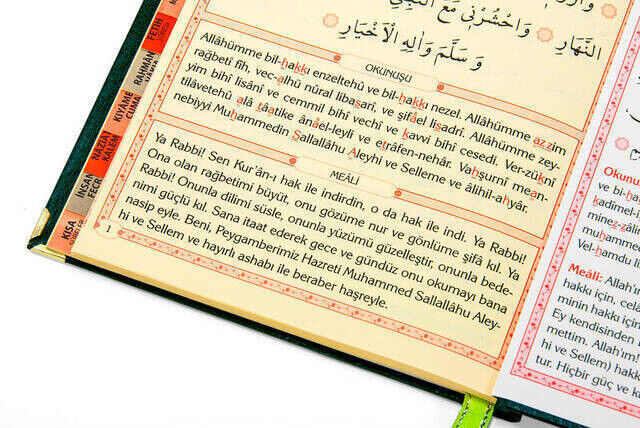 النَّهَارِ وَاحْشُرْنِي مَعَ النَّبِيِّ
وَسَلَّمَ وَاٰلِهِ الْاَخْيَارِ
OKUNUŞU
Allâhümme bil-hakkı enzeltehû ve bil-hakkı nezel. Allâhümme azzim
rağbetî fîh, vec-alhü nûral libasarî, ve şifâel lisadrî. Allâhümme zey-
yim bihî lisânî ve cemmil bihî vechî ve kavvi bihî cesedî. Ver-zuknî
tilâvetehû alâ tâatike ânâel-leyli ve etrâfen-nehâr. Vahşurnî mean-
nebiyyi Muhammedin Sallallâhu Aleyhi ve Selleme ve âlihil-ahyâr.
MEÂLİ
Ya Rabbi! Sen Kur'ân-ı hak ile indirdin, o da hak ile indi. Ya Rabbi!
Ona olan rağbetimi büyüt, onu gözüme nur ve gönlüme şifâ kıl. Ya
Rabbi! Onunla dilimi süsle, onunla yüzümü güzelleştir, onunla bede-
nimi güçlü kıl. Sana itaat ederek gece ve gündüz onu okumayı bana
nasip eyle. Beni, Peygamberimiz Hazreti Muhammed Sallallâhu Aley-
hi ve Sellem ve hayırlı ashabı ile beraber haşreyle.
1
FETİH
RAHMAN
VÂKIA
KIYAME
CUMA
NAZİAT
KALEM
İNSAN
FECR
KISA
Okunu
ve bi-h
kadîmel-
minez-zâli
muhamm
Vel-hamdu li
Meâli: Allah'ı
hakkı için, cel
minin hakkı iç
Ey kendisinden
mettim. Allah'ım!
hi ve Sellem) hakk
tur. Hiçbir güç ve k